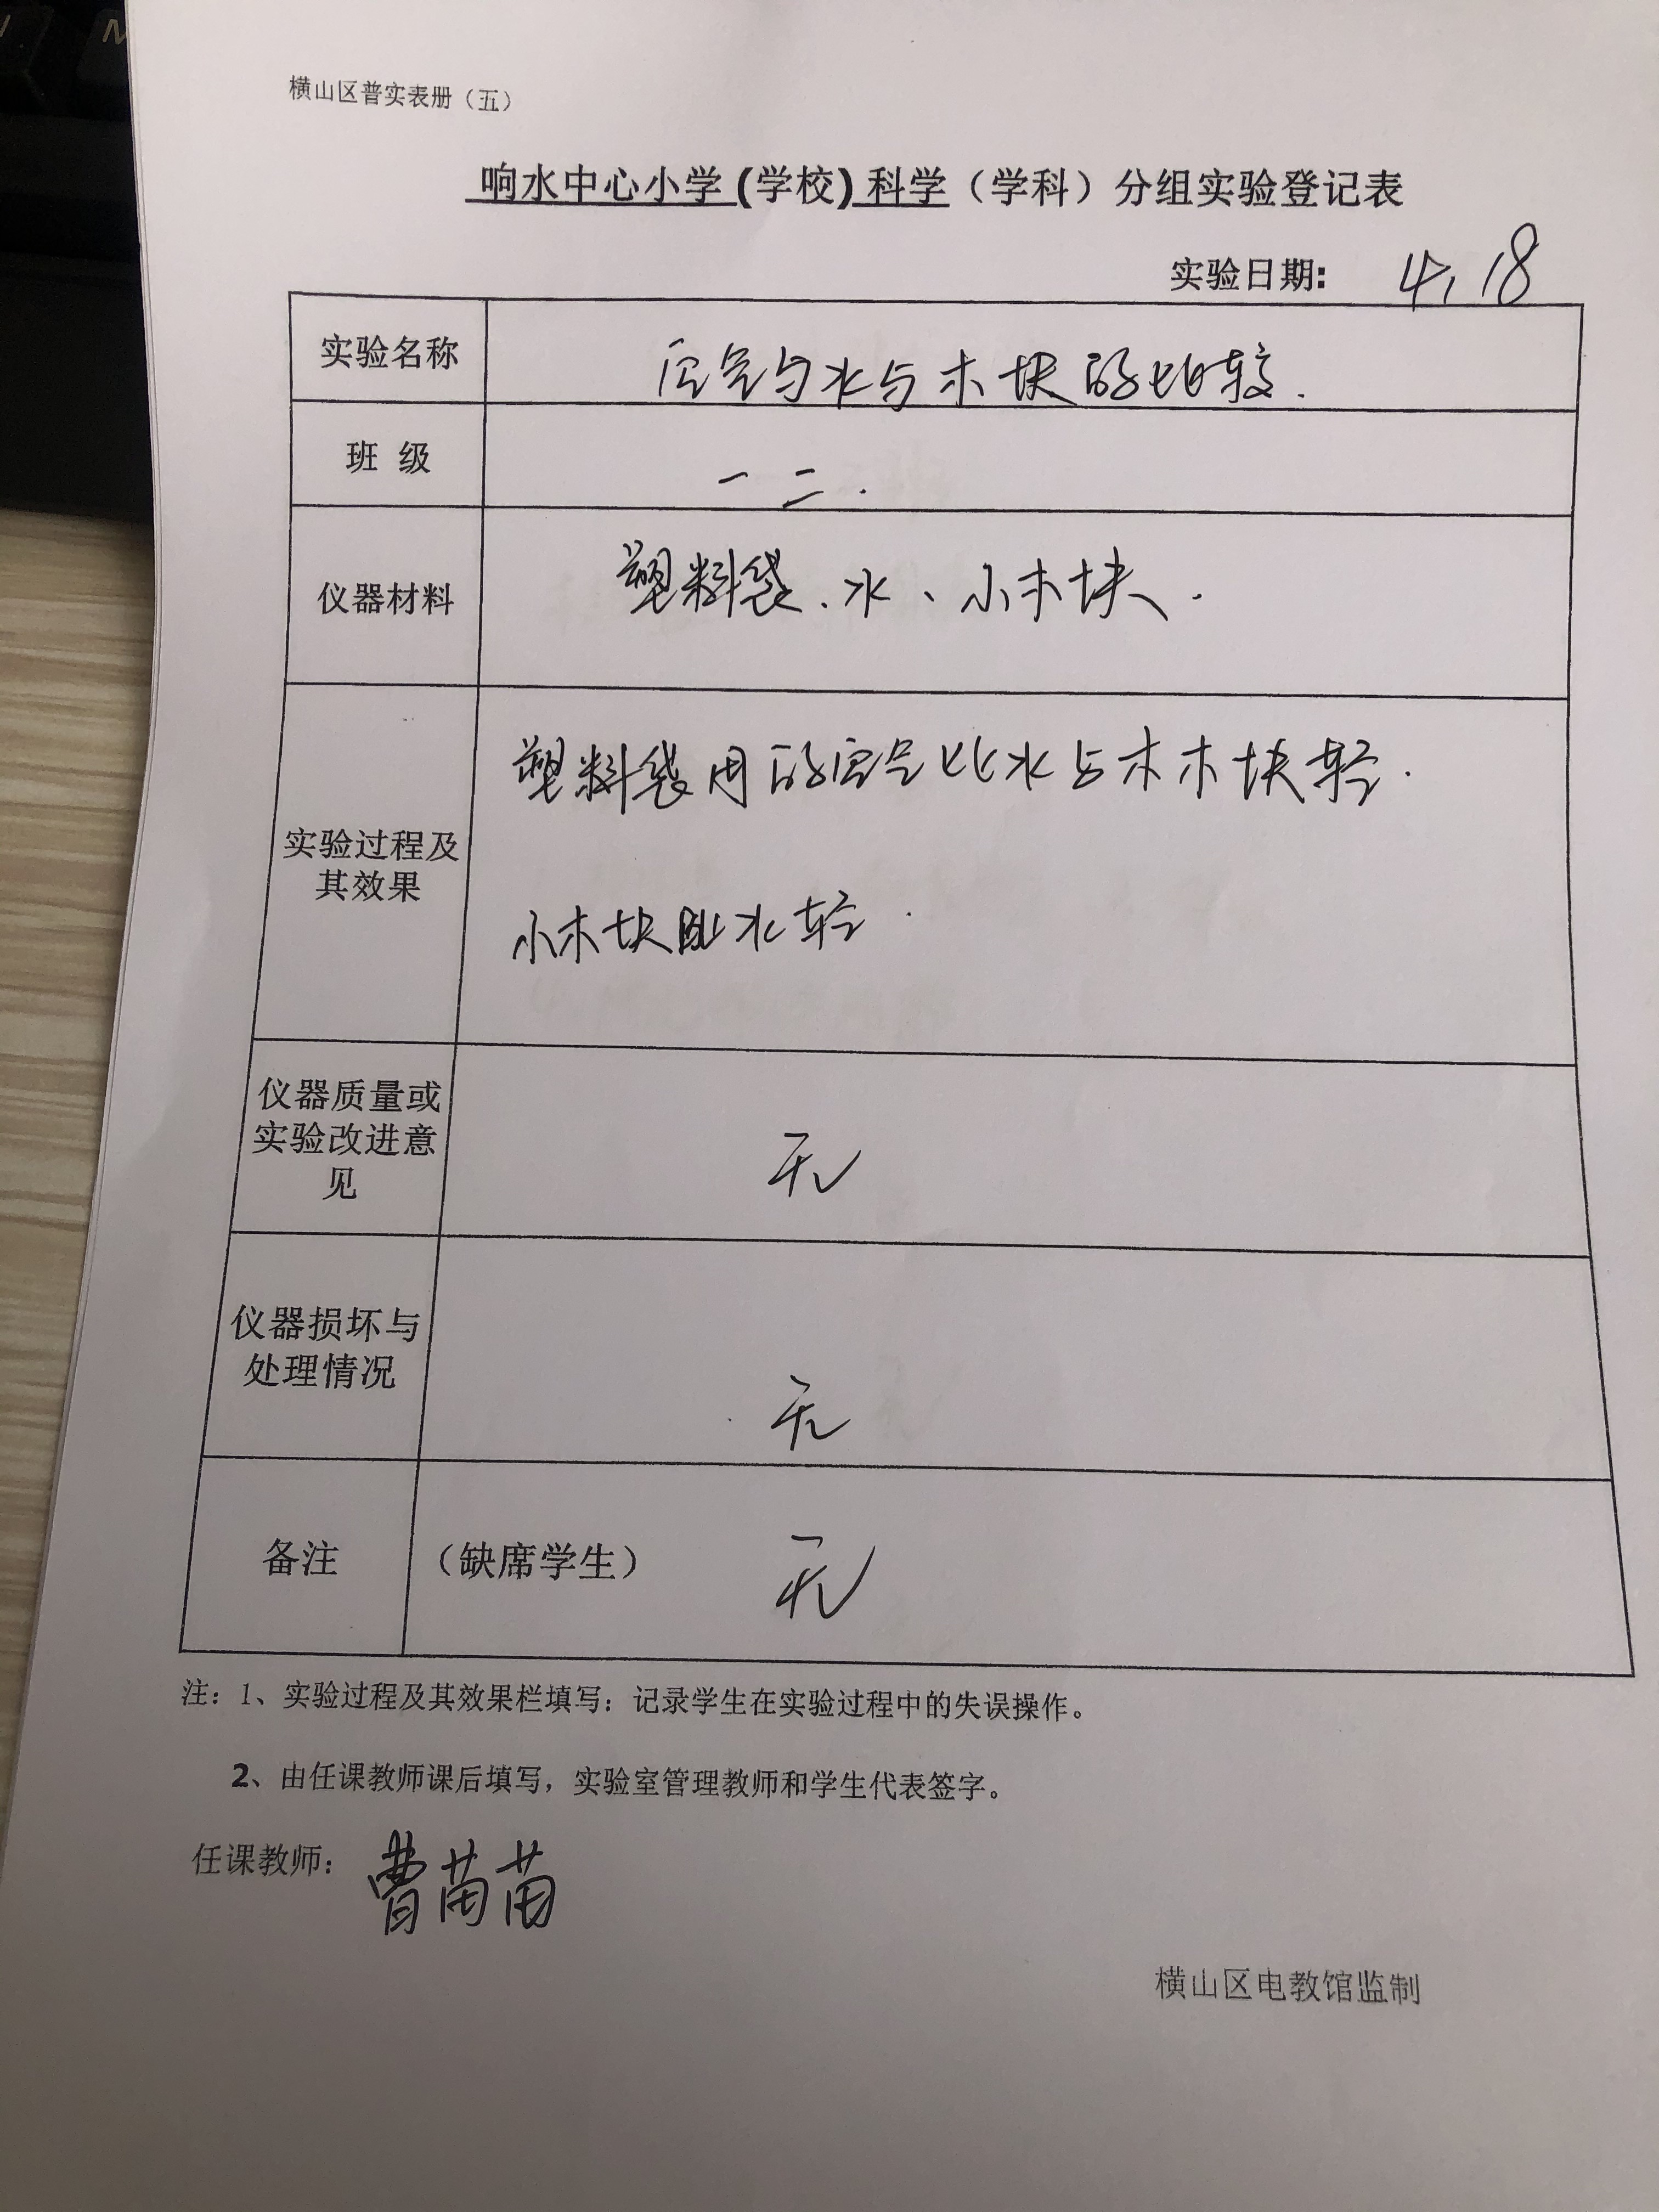 横山区普实表册（五）
响水中心小学(学校)科学（学科）分组实验登记表
实验日期: 4.18
实验名称 空气与水与木块的比较.
班 级 一二.
仪器材料 塑料袋、水、小木块.
实验过程及
其效果
塑料袋内的空气比水与木木块轻.
小木块比水轻.
仪器质量或
实验改进意
见
无
仪器损坏与
处理情况
无
备注 （缺席学生） 无
注：1、实验过程及其效果栏填写：记录学生在实验过程中的失误操作。
2、由任课教师课后填写，实验室管理教师和学生代表签字。
任课教师: 曹苗苗
横山区电教馆监制